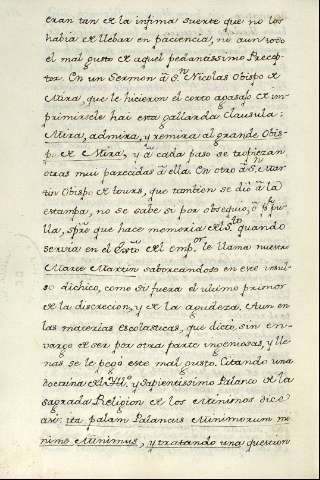 eran tan de la infima suerte que no los
havia de llebar en paciencia, ni aun todo
el mal gusto de aquel pedantissimo Precep-
tor. En un Sermon à Sn. Nicolas Obispo de
Mira, que le hicieron el corto agasajo de im-
primirsele hai esta gallarda clausula:
Mira, admira, y remira al grande Obis-
po de Mira, y à cada paso se tropiezan
otras mui parecidas à ella. En otro à Sn. Mar-
tin Obispo de tours, que tambien se diò à la
estampa, no se sabe si por obsequio, ò pr. pu-
lla, spre. que hace memoria del Sto. quando
servia en el Exto. del Empor. le llama nuestro
Marte Martin saboreandose en este insul-
so dichico, como si fuera el ultimo primor
de la discrecion, y de la agudeza. Aun en
las materias escolasticas, que dictò, sin em-
vargo de ser por otra parte ingeniosas, y lle-
nas se le pegò este mal gusto. Citando una
doctrina del Yllo. y Sapientissimo Palanco de la
sagrada Religion de los Minimos dice
asi: ita palam Palancus Minimorum mi-
nime Minimus, y tratando una question